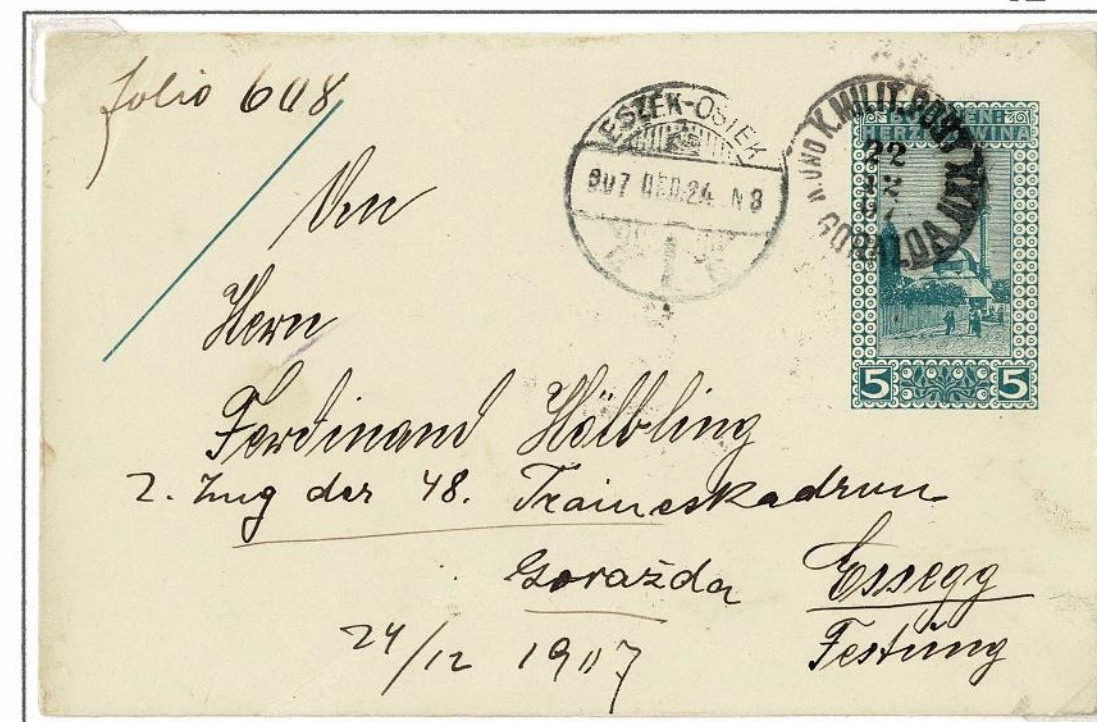 folio 608
ESZÉK-OSIEK
907 DEC.24. N8
1
K. UND K. MILIT. POST
22
12
GORAZDA
HERZEGOWINA
5 5
An
Hern
Ferdinand Hölbling
2. Zug der 48. Traineskadron
Goražda Essegg
Festung
24/12 1907